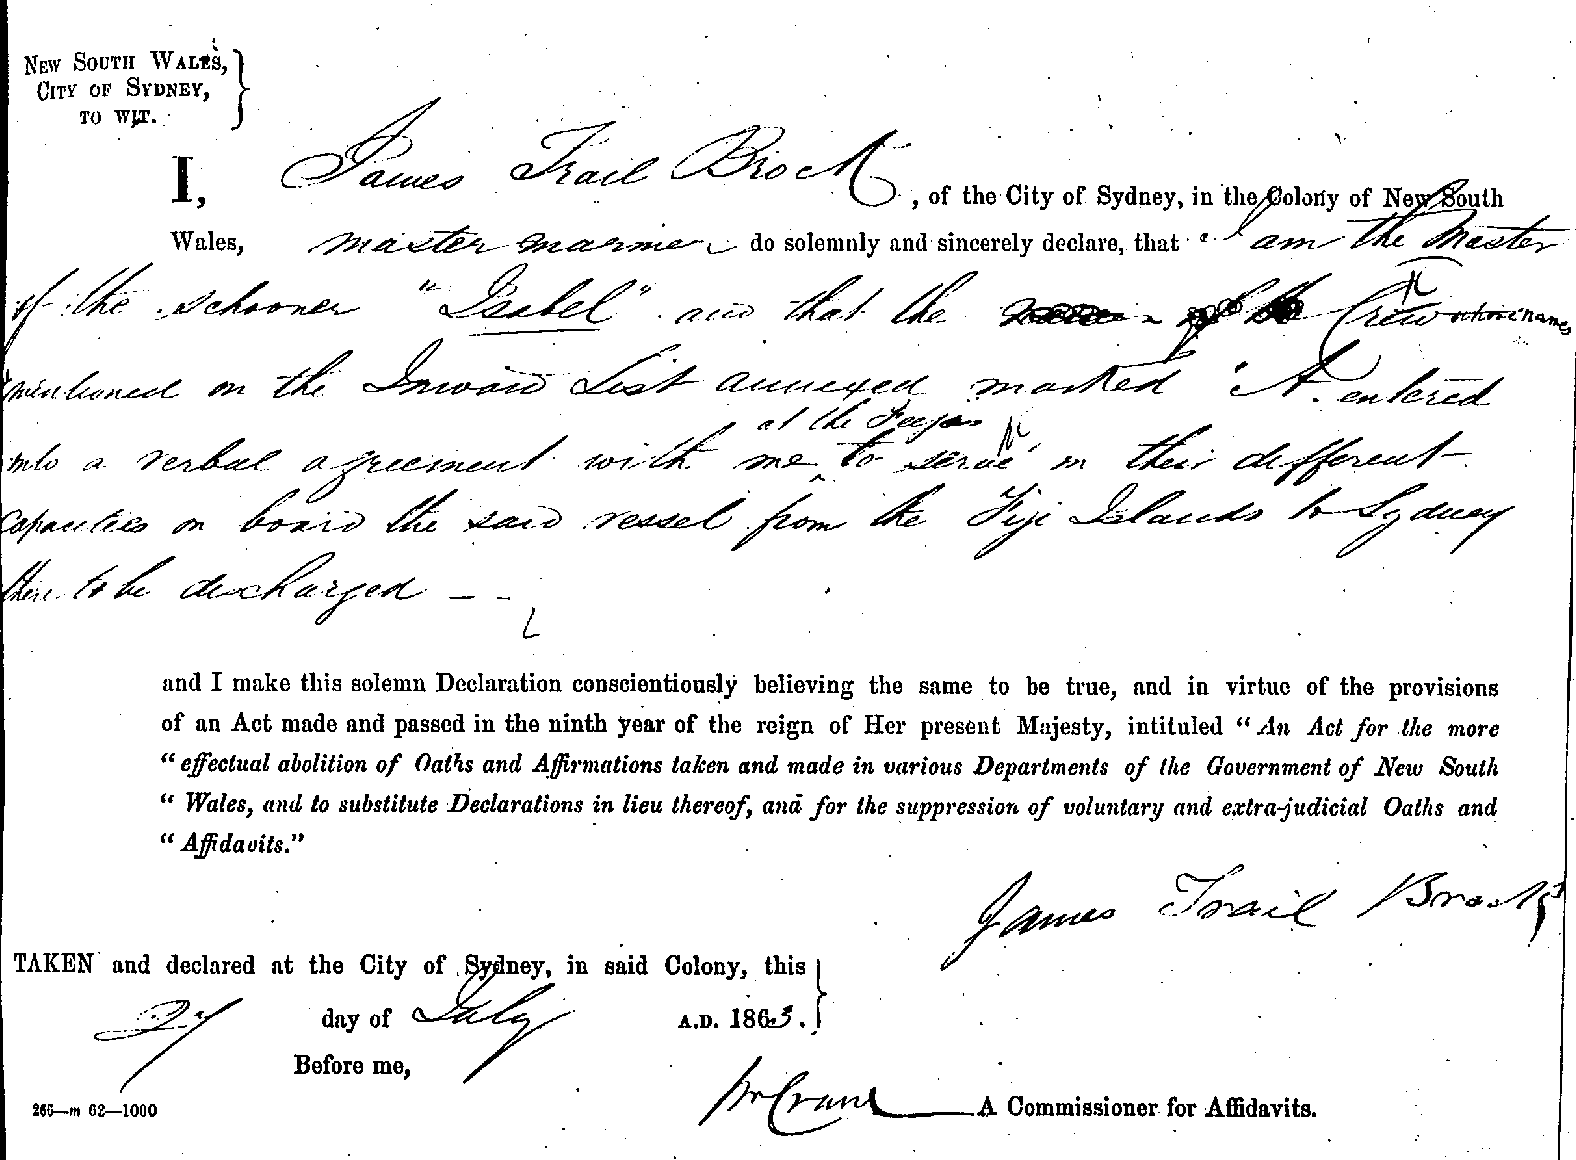 NEW SOUTH WALES,
CITY OF SYDNEY,
TO WIT.
I, James Trail Brock, of the City of Sydney, in the Colony of New South
Wales, master mariner do solemnly and sincerely declare, that I am the Master
of the schooner "Isabel" and that the Crew whose names
mentioned on the Inward List annexed marked A. entered
at the Feejees
into a verbal agreement with me to serve in their different
capacities on board the said vessel from the Fiji Islands to Sydney
there to be discharged
and I make this solemn Declaration conscientiously believing the same to be true, and in virtue of the provisions
of an Act made and passed in the ninth year of the reign of Her present Majesty, intituled "An Act for the more
"effectual abolition of Oaths and Affirmations taken and made in various Departments of the Government of New South
"Wales, and to substitute Declarations in lieu thereof, and for the suppression of voluntary and extra-judicial Oaths and
"Affidavits."
James Trail Brock
TAKEN and declared at the City of Sydney, in said Colony, this
27 day of July A.D. 1863.
Before me,
Crane A Commissioner for Affidavits.
265—m 62—1000